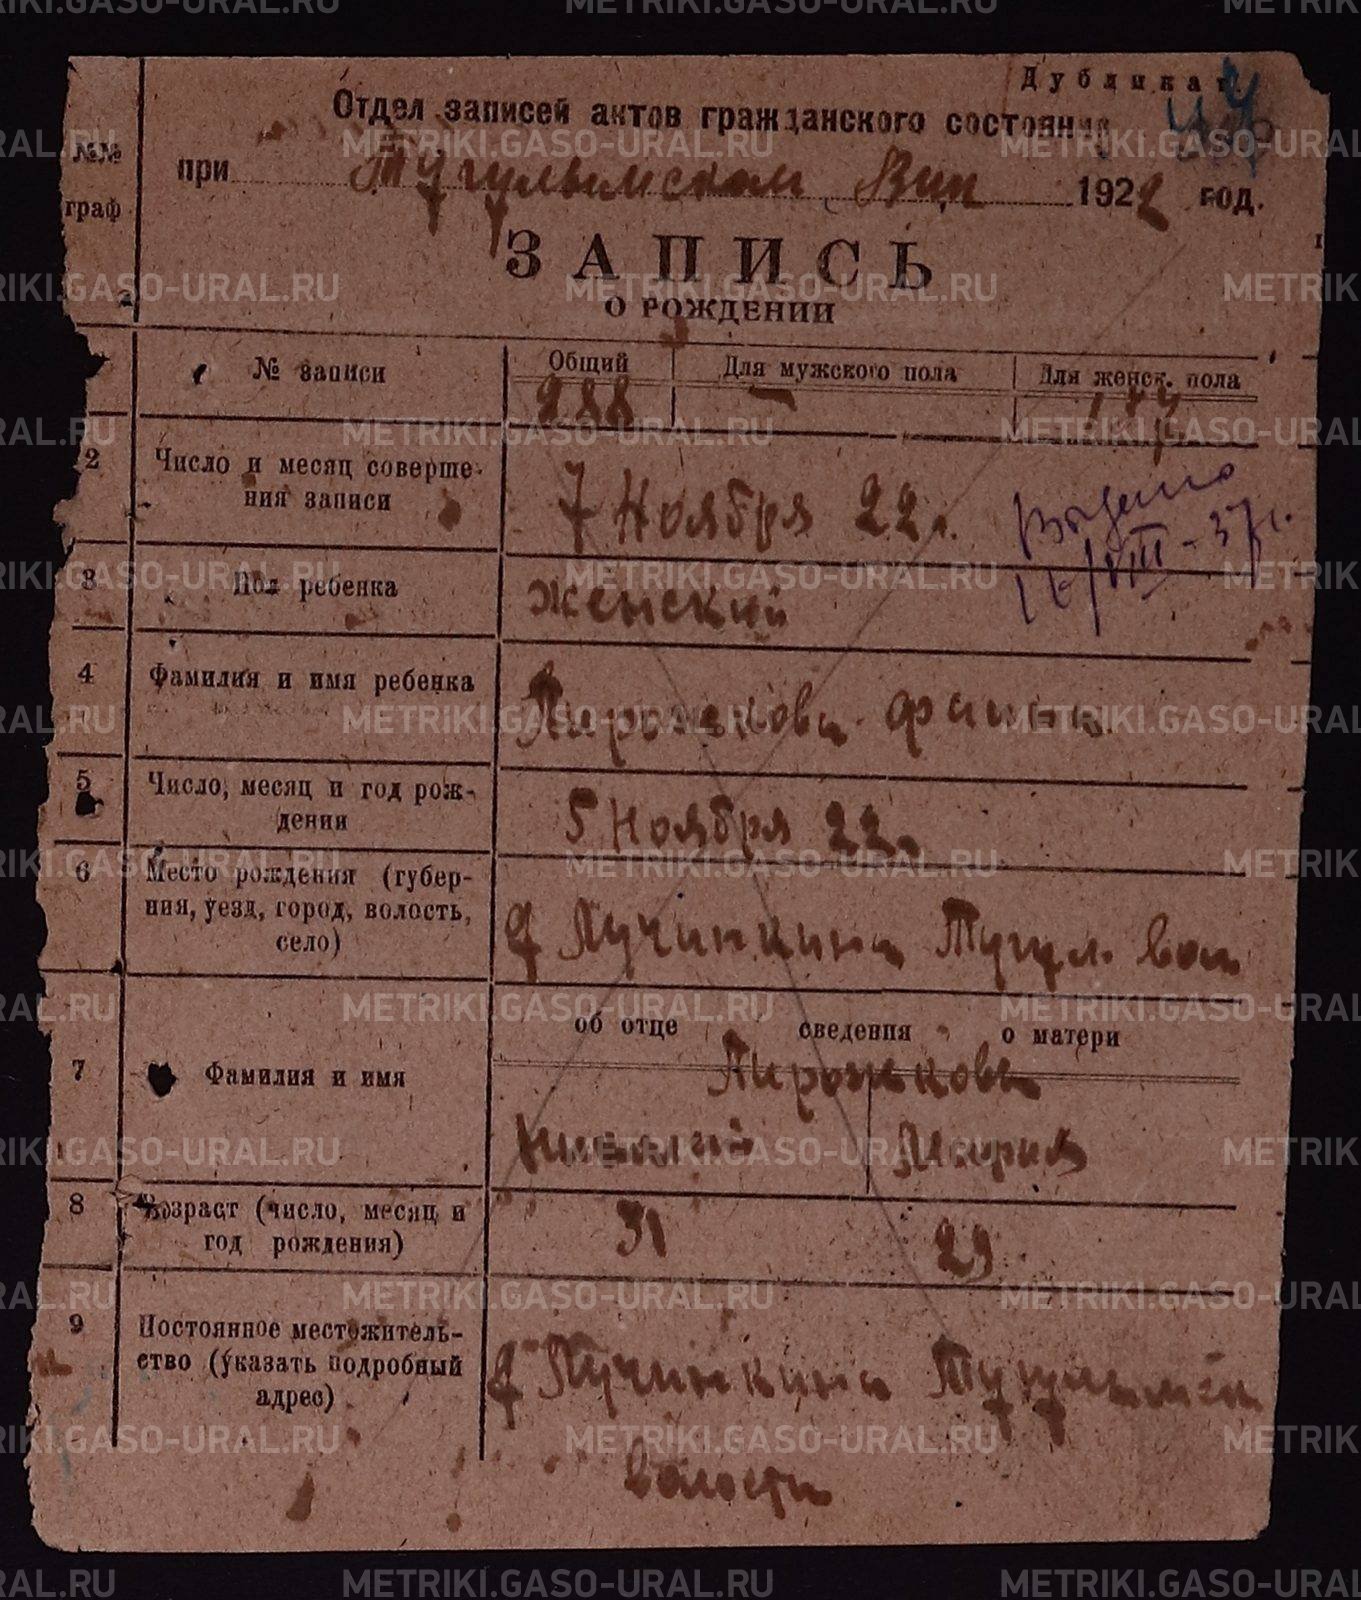 Дубликат
Отдел записей актов гражданского состояния
при Тугулымском Вик 1922 год.
№№ граф
ЗАПИСЬ
О РОЖДЕНИИ
1 № записи Общий Для мужского пола Для женск. пола
288 —
2 Число и месяц соверше-
ния записи
7 Ноября 22 г.
Выдано
/VIII-37 г.
3 Пол ребенка женский
4 Фамилия и имя ребенка Пирожкова Фаина
5 Число, месяц и год рож-
дении
5 Ноября 22 г.
6 Место рождения (губер-
ния, уезд, город, волость,
село)
д Лучинкина Тугул. вол
об отце сведения о матери
7 Фамилия и имя Пирожковы
Николай Мария
8 Возраст (число, месяц и
год рождения)
31 29
9 Постоянное местожитель-
ство (указать подробный
адрес)
д Лучинкина Тугулымской
волости
METRIKI.GASO-URAL.RU